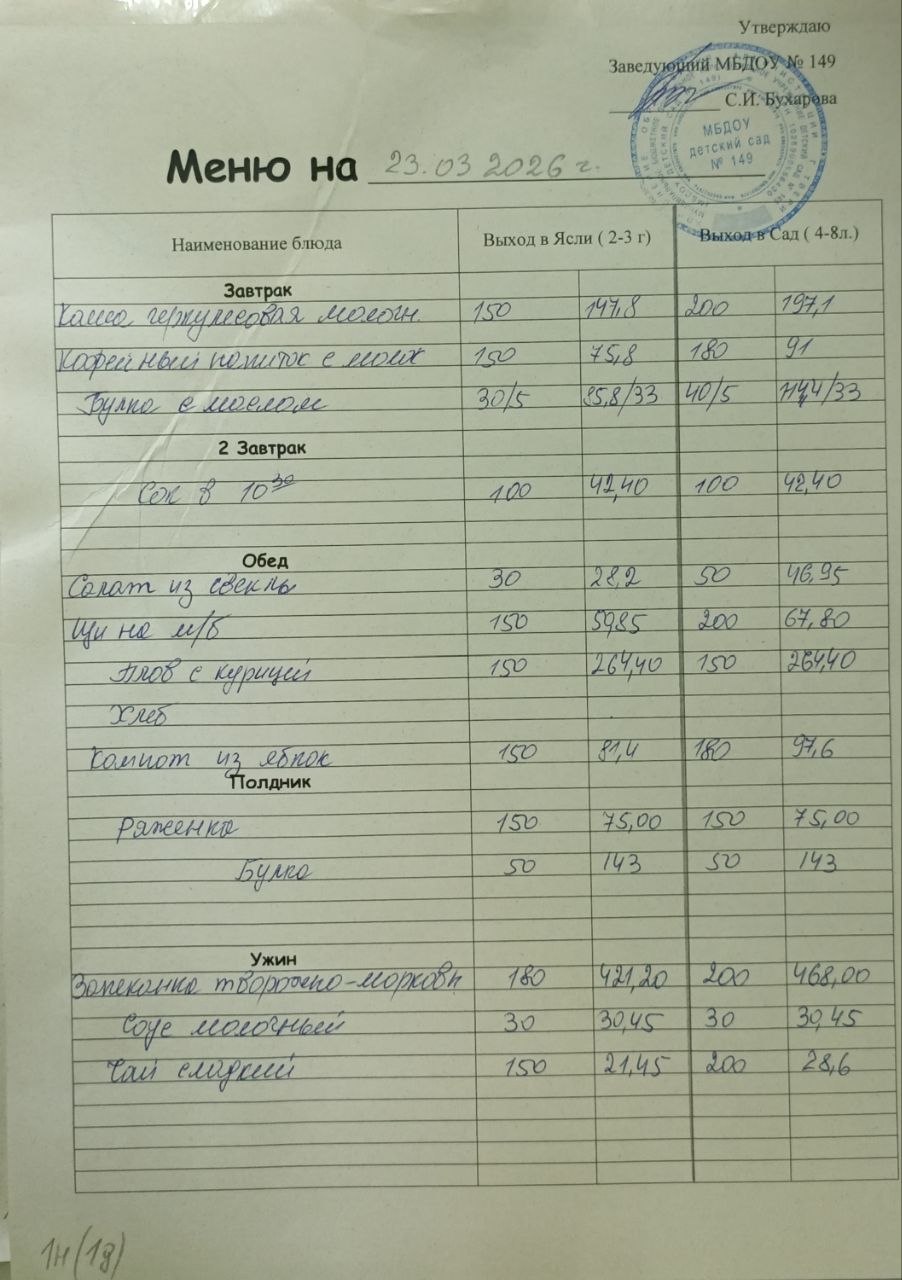 Утверждаю
Заведующий МБДОУ № 149
С.И. Бухарова
МБДОУ
детский сад
№ 149
Меню на 23.03 2026 г.
Наименование блюда Выход в Ясли ( 2-3 г) Выход в Сад ( 4-8л.)
Завтрак
Каша геркулесовая молочн. 150 147,8 200 197,1
Кофейный напиток с молок 150 75,8 180 91
Булка с маслом 30/5 85,8/33 40/5 114,4/33
2 Завтрак
Сок в 10 30 100 42,40 100 42,40
Обед
Салат из свеклы 30 28,2 50 46,95
Щи на м/б 150 59,85 200 67,80
Плов с курицей 150 264,40 150 264,40
Хлеб
Компот из яблок 150 81,4 180 97,6
Полдник
Ряженка 150 75,00 150 75,00
Булка 50 143 50 143
Ужин
Запеканка творожно-морковн 180 421,20 200 468,00
Соус молочный 30 30,45 30 30,45
Чай сладкий 150 21,45 200 28,6
1н(1д)